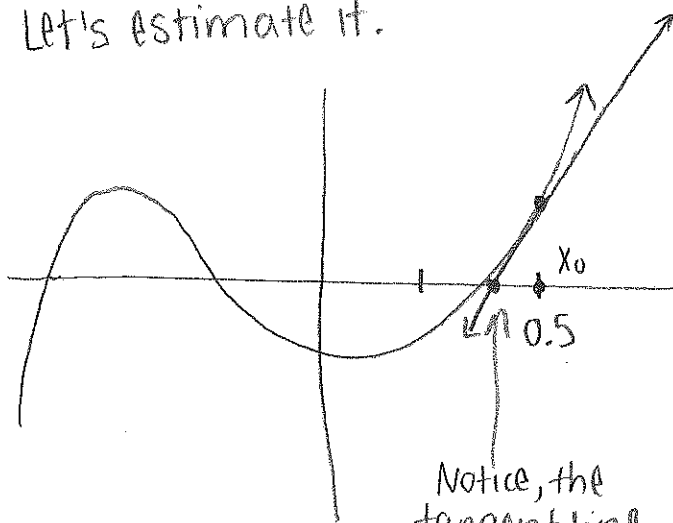 Let's estimate it.
X₀
0.5
Notice, the
tangent line